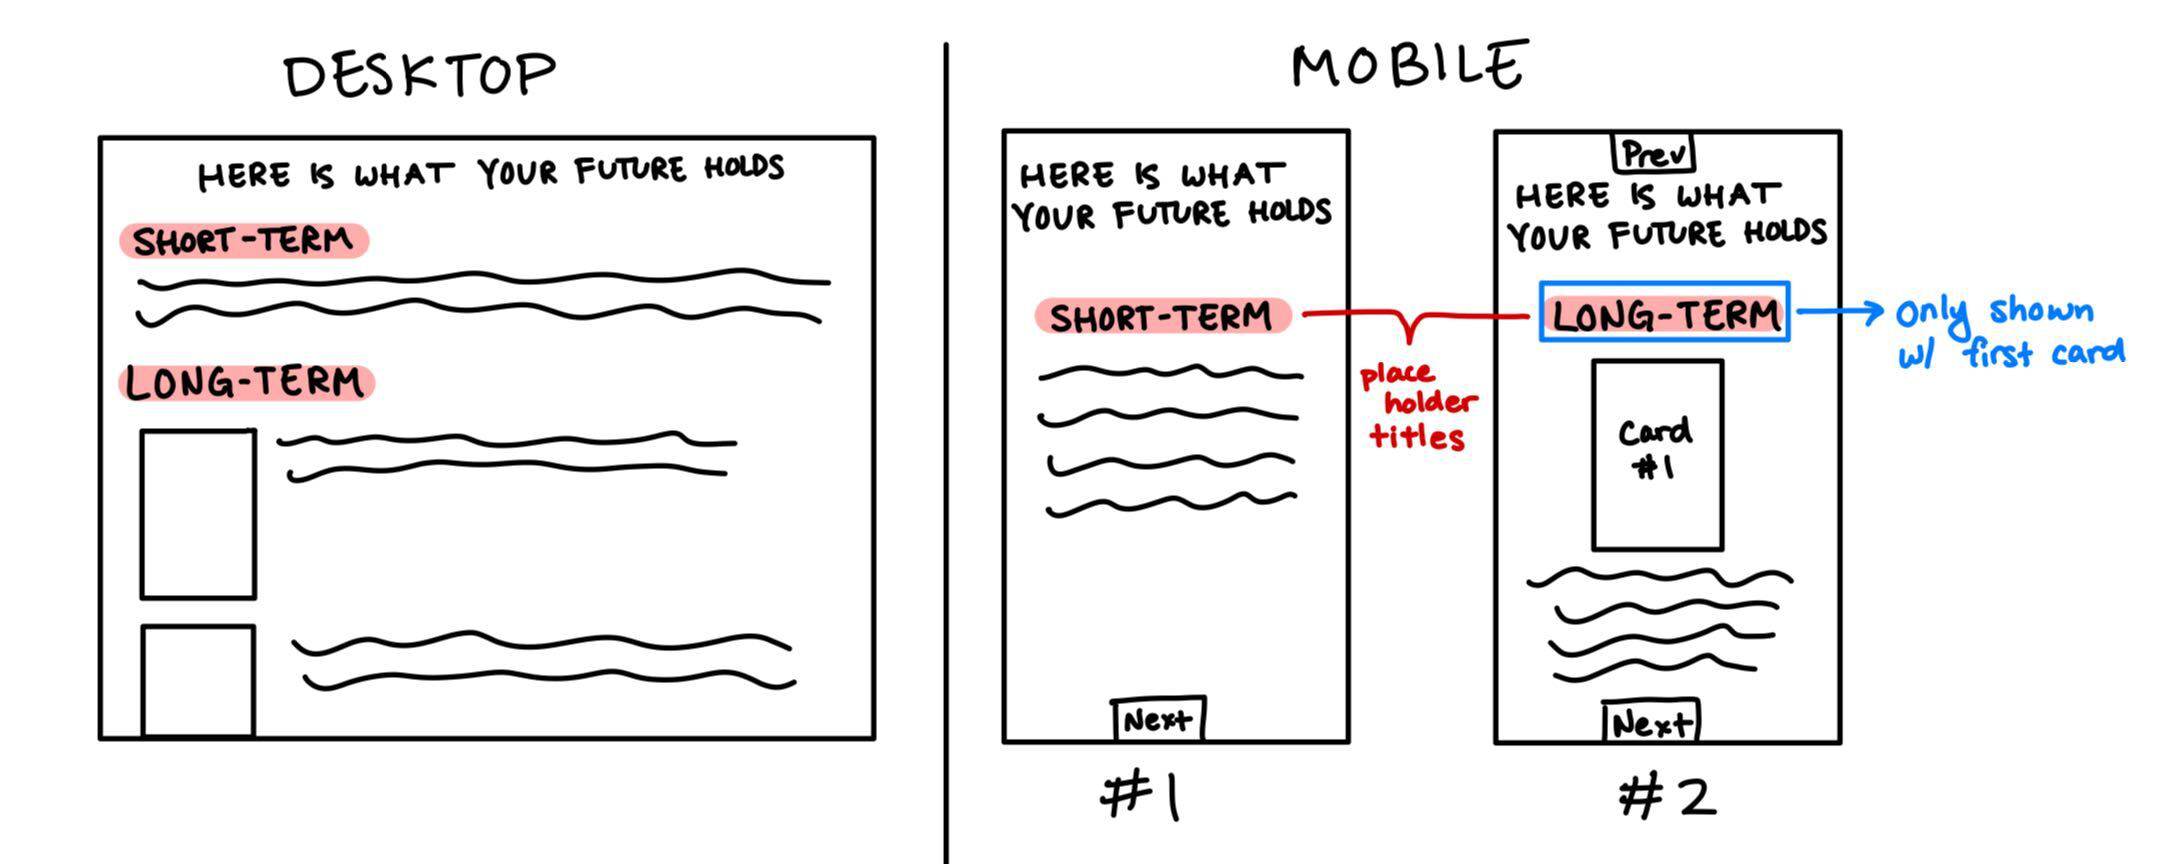 DESKTOP
HERE IS WHAT YOUR FUTURE HOLDS
SHORT-TERM
LONG-TERM
MOBILE
HERE IS WHAT
YOUR FUTURE HOLDS
SHORT-TERM
Next
#1
place
holder
titles
Prev
HERE IS WHAT
YOUR FUTURE HOLDS
LONG-TERM
Card
#1
Next
#2
only shown
w/ first card